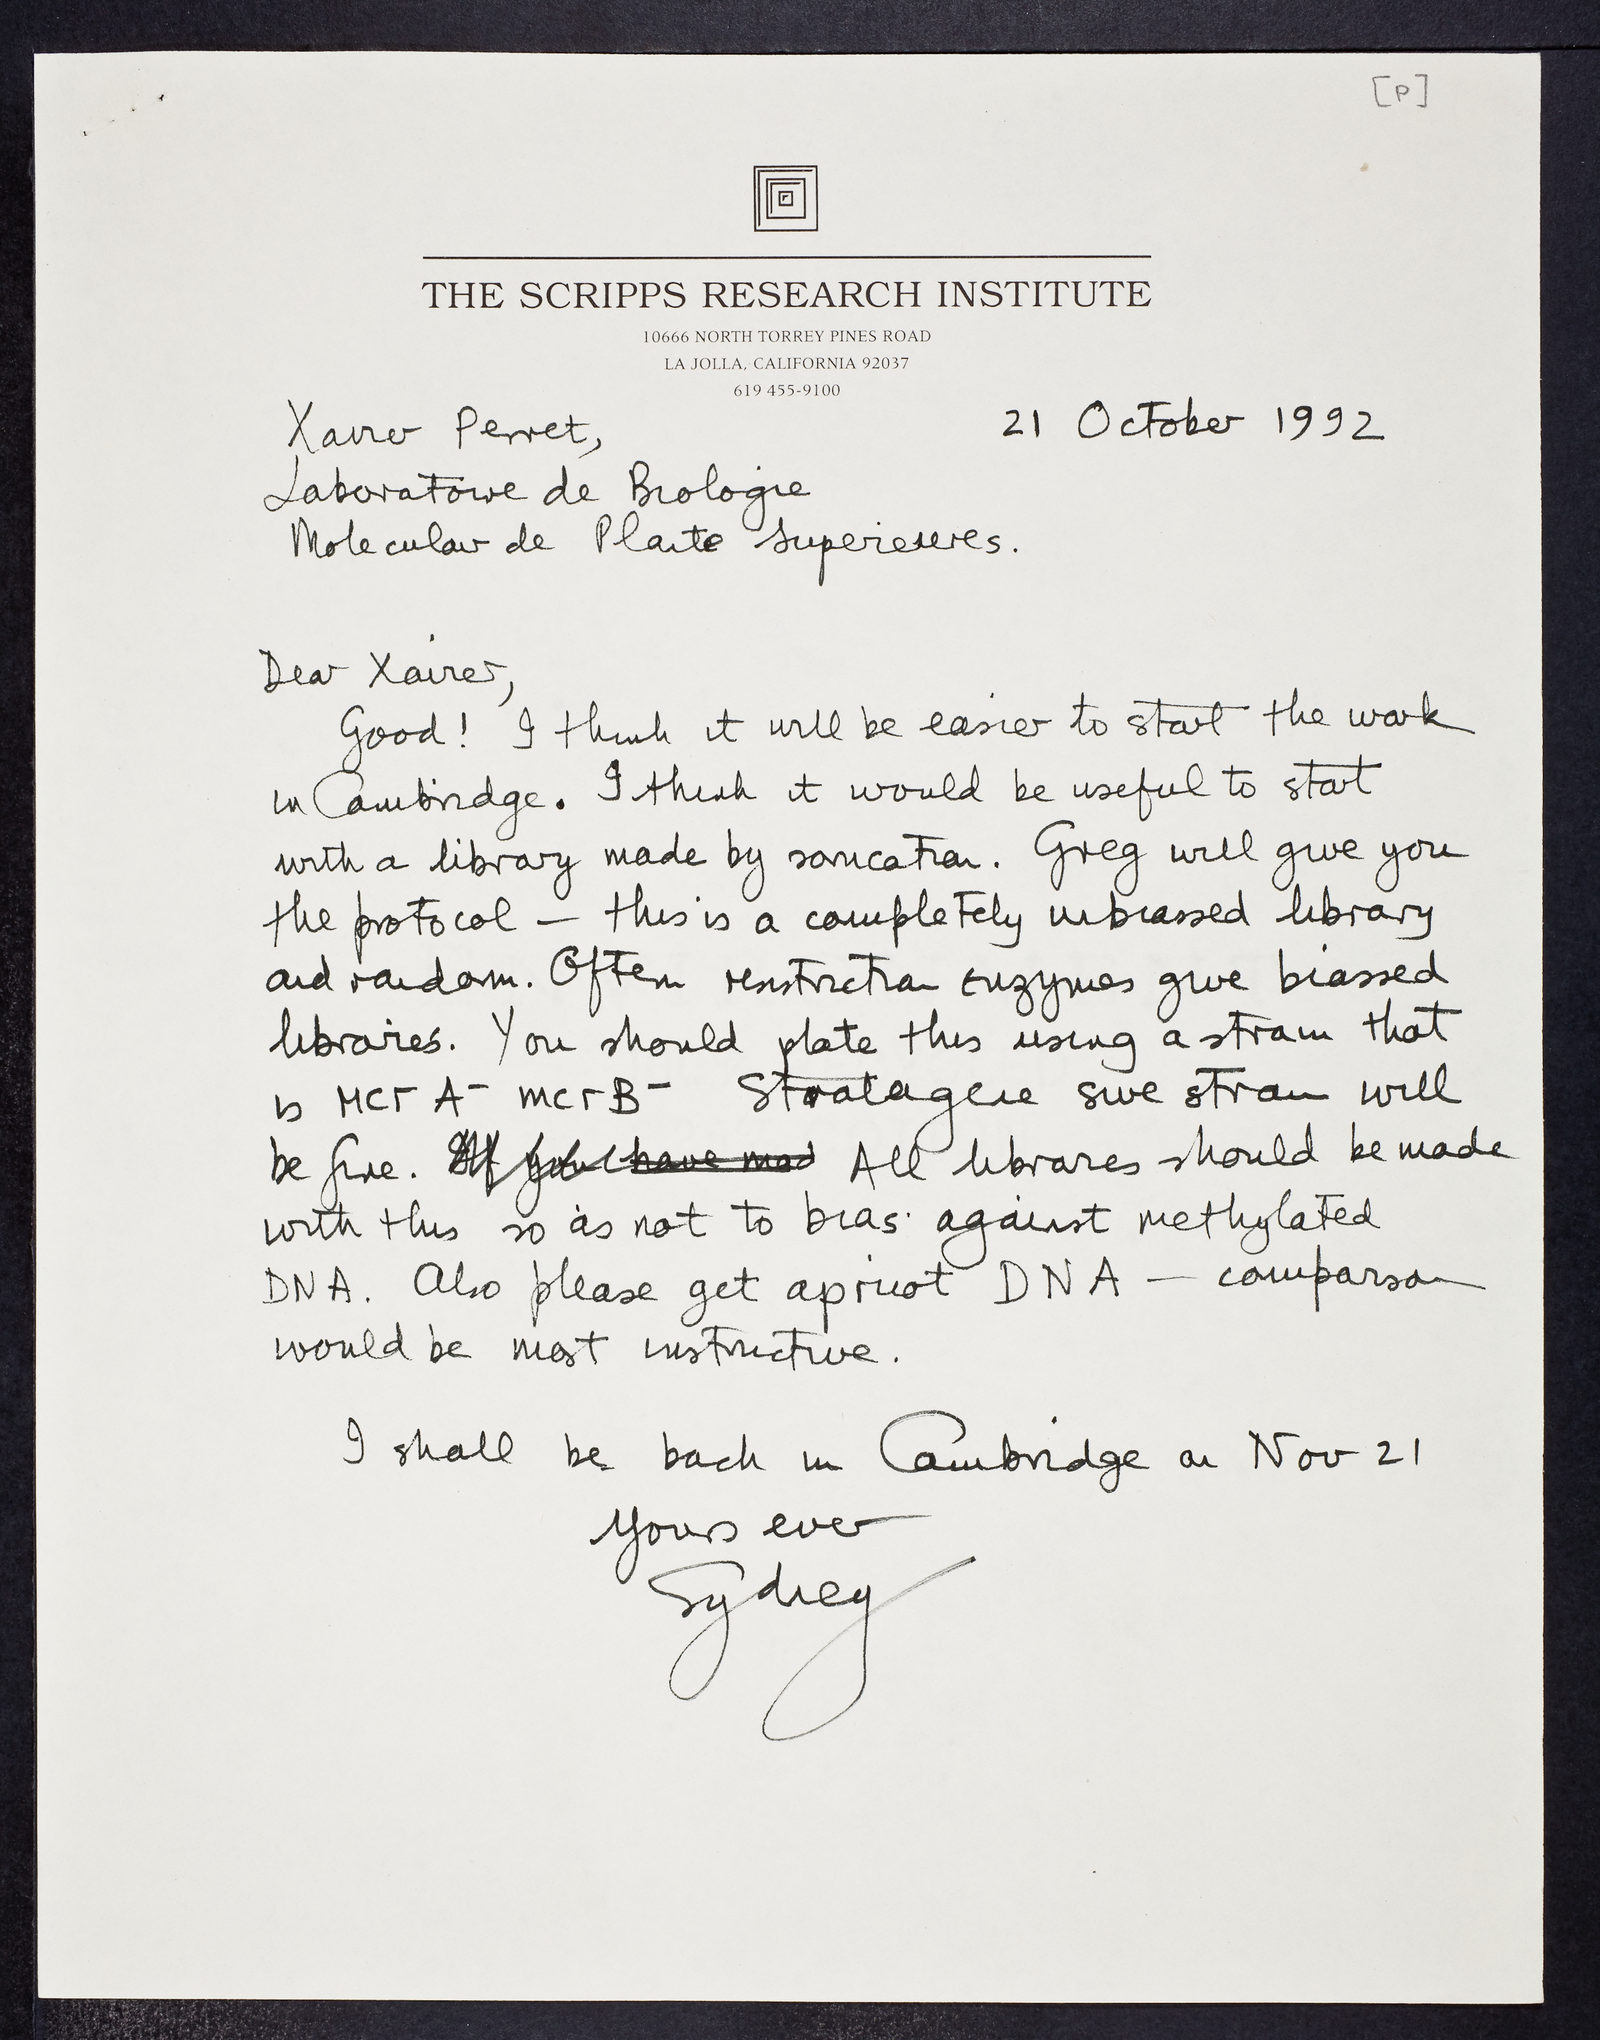 [P]
THE SCRIPPS RESEARCH INSTITUTE
10666 NORTH TORREY PINES ROAD
LA JOLLA, CALIFORNIA 92037
619 455-9100
Xavier Perret, 21 October 1992
Laboratoire de Biologie
Molecular de Plante Superieures.
Dear Xavier,
Good! I think it will be easier to start the work
in Cambridge. I think it would be useful to start
with a library made by sonication. Greg will give you
the protocol — this is a completely unbiassed library
and random. Often restriction enzymes give biassed
libraries. You should plate this using a strain that
is mcr A- mcr B- Stratagene sure strain will
be fine. If you have mad All libraries should be made
with this so as not to bias against methylated
DNA. Also please get apricot DNA — comparison
would be most instructive.
I shall be back in Cambridge on Nov 21
Yours ever
Sydney